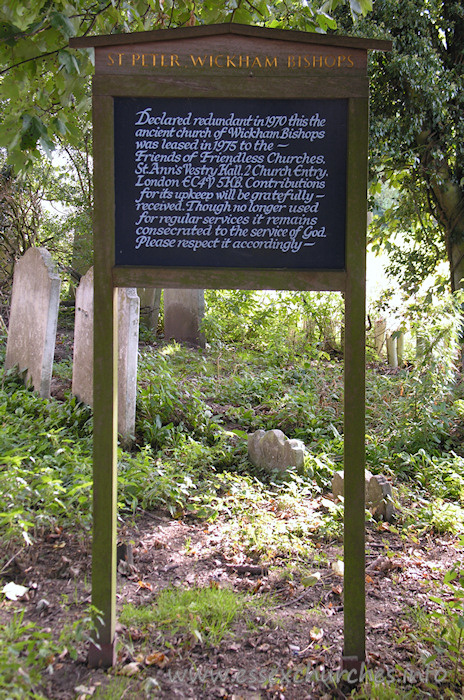 ST PETER WICKHAM BISHOPS
Declared redundant in 1970 this the
ancient church of Wickham Bishops
was leased in 1975 to the ~
Friends of Friendless Churches,
St. Ann's Vestry Hall, 2 Church Entry,
London EC4V 5KB. Contributions
for its upkeep will be gratefully –
received. Though no longer used
for regular services it remains
consecrated to the service of God.
Please respect it accordingly –
www.essexchurches.info